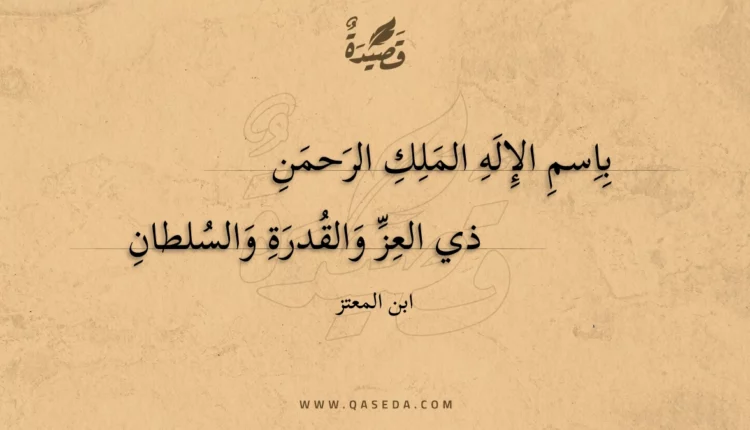 قَصِيدَةٌ
بِاِسمِ الإِلَهِ المَلِكِ الرَحمَنِ
ذي العِزِّ وَالقُدرَةِ وَالسُلطانِ
ابن المعتز
WWW.QASEDA.COM